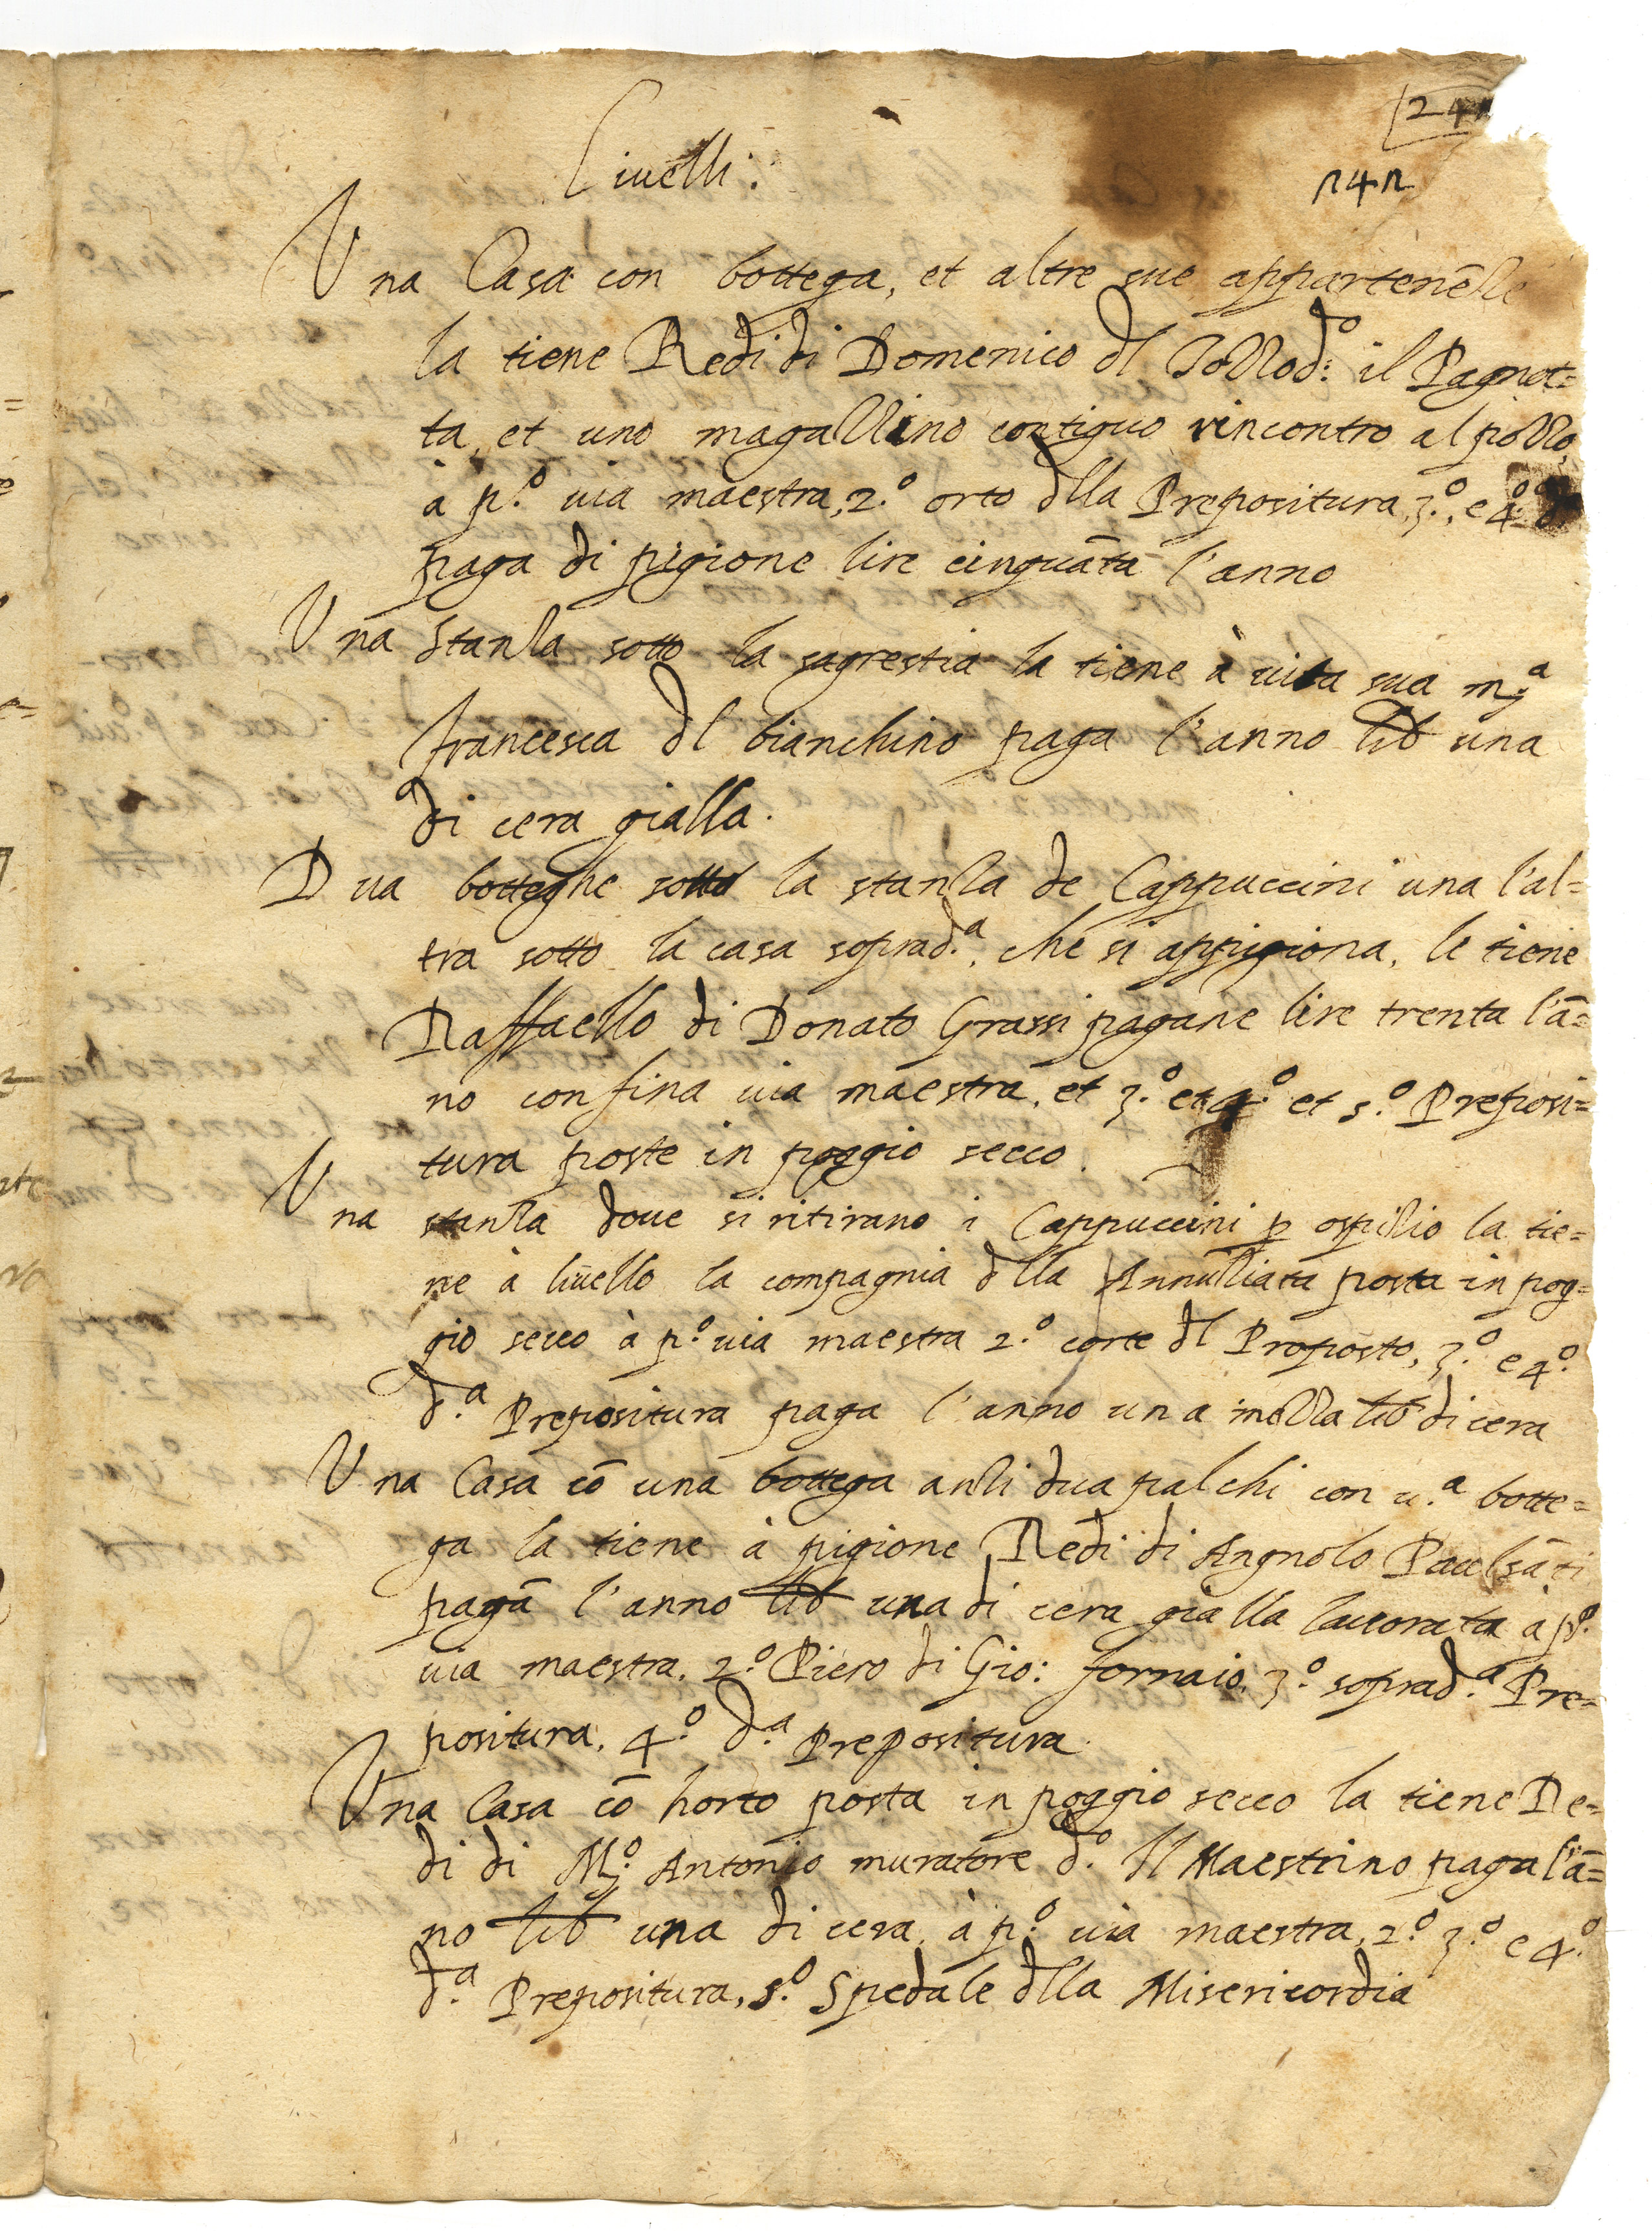 Liuelli:
141
Una Casa con bottega, et altre sue appartenẽze
la tiene Redi di Domenico dl Pozzo d:º il Pagnot=
ta, et uno magazzino contiguo rincontro al pozzo,
à p.º uia maestra, 2.º orto dlla Prepositura, 3.º, e 4.º
paga di pigione lire cinquãta l'anno
Una stanza sotto la sagrestia la tiene à uita sua m.ª
francesca dl bianchino paga l'anno lib una
di cera gialla.
Dua botteghe sotto la stanza de Cappuccini una l'al=
tra sotto la casa soprad.ª, che si appigiona, le tiene
Raffaello di Donato Grassi pagane lire trenta l'ã=
no confina uia maestra, et 3.º et 4.º et 5.º Preposi=
tura poste in poggio secco.
Una stanza doue si ritirano i Cappuccini p ospizio la tie=
ne à liuello la compagnia dlla Annuziata posta in pog=
gio secco à p.º uia maestra 2.º corte dl Proposto, 3.º e 4.º
d.ª Prepositura paga l'anno una mezza lib di cera
Una Casa cõ una bottega anzi dua palchi con u.ª botte=
ga la tiene à pigione Redi di Angnolo
pagã l'anno lib una di cera gialla lauorata à p.º
uia maestra, 2.º Piero di Gio: fornaio, 3.º soprad.ª Pre=
positura, 4.º d.ª Prepositura.
Una Casa cõ horto posta in poggio secco la tiene Re=
di di M.º Antonio muratore d.º Il Maestrino paga l'ã=
no lib una di cera, à p.º uia maestra, 2.º 3.º e 4.º
d.ª Prepositura, 5.º Spedale dlla Misericordia